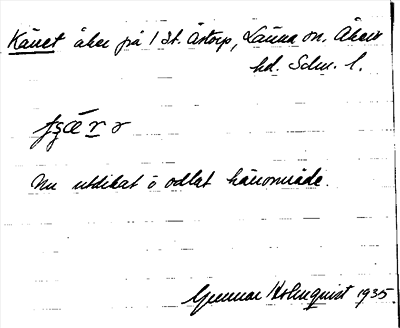 Käret åker på 1 St. Åstorp, Länna sn. Åkers
hd. Sdm. l.
Nu utdikat o odlat kärrområde.
Gunnar Holmquist 1935.